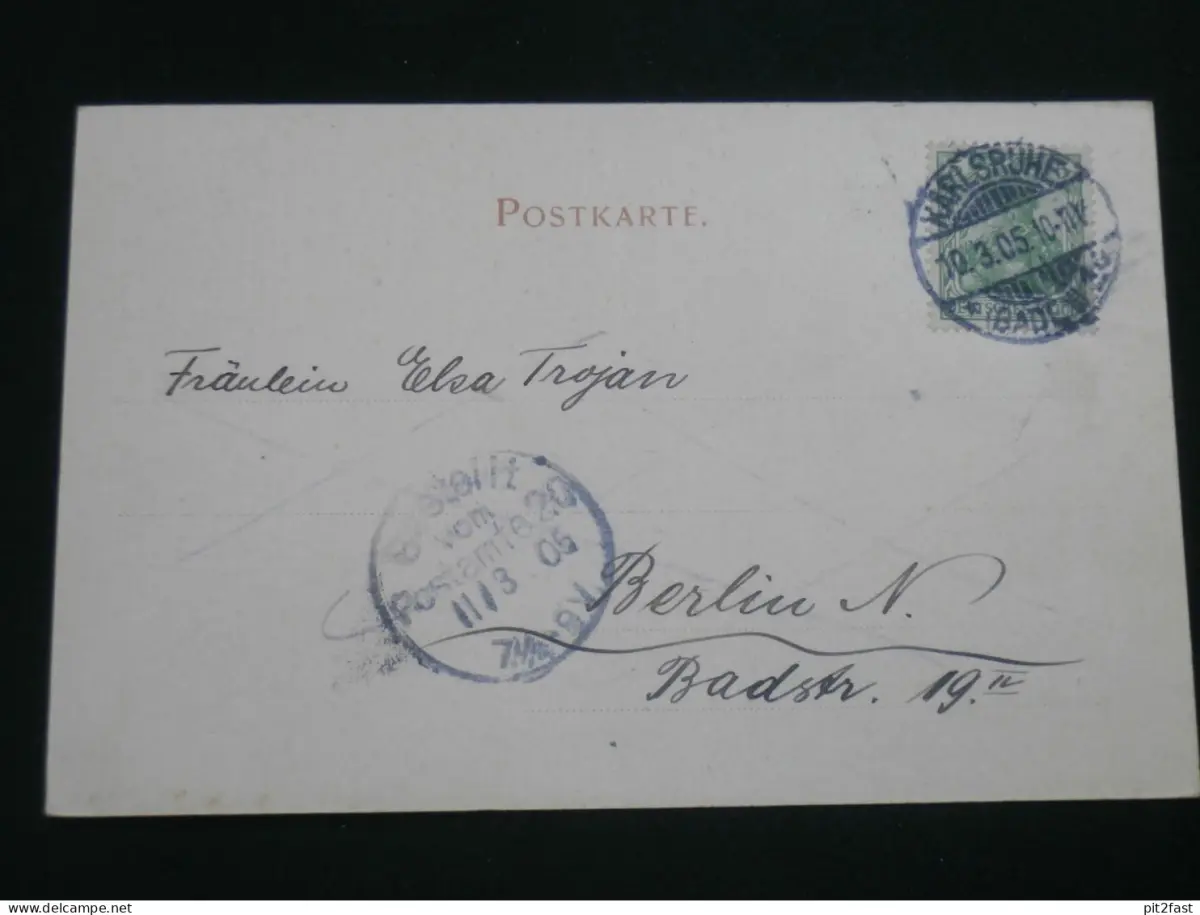 POSTKARTE.
KARLSRUHE
10.3.05. 10-11V
(BADEN)
Fräulein Elsa Trojan
Bestellt
vom
Postamte 20
11/3 05
Berlin N.
Badstr. 19. IV
www.delcampe.net
pit2fast